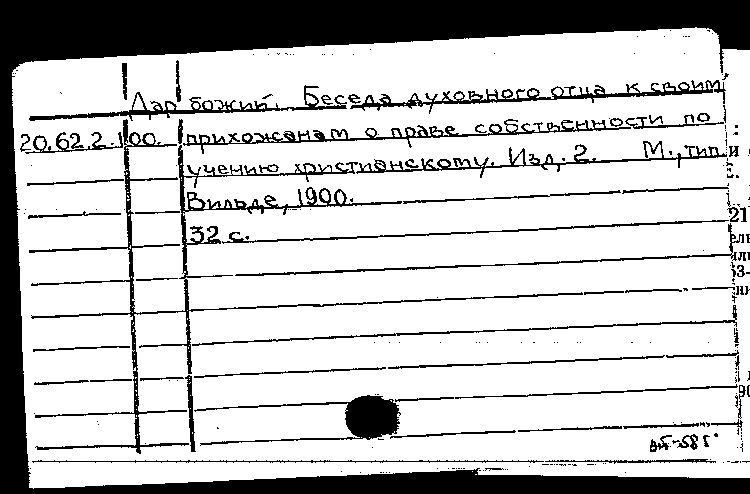 Дар божий. Беседа духовного отца к своим
20.62.2.100. прихожанам о праве собственности по
учению христианскому. Изд. 2. М., тип.
Вильде, 1900.
32 с.